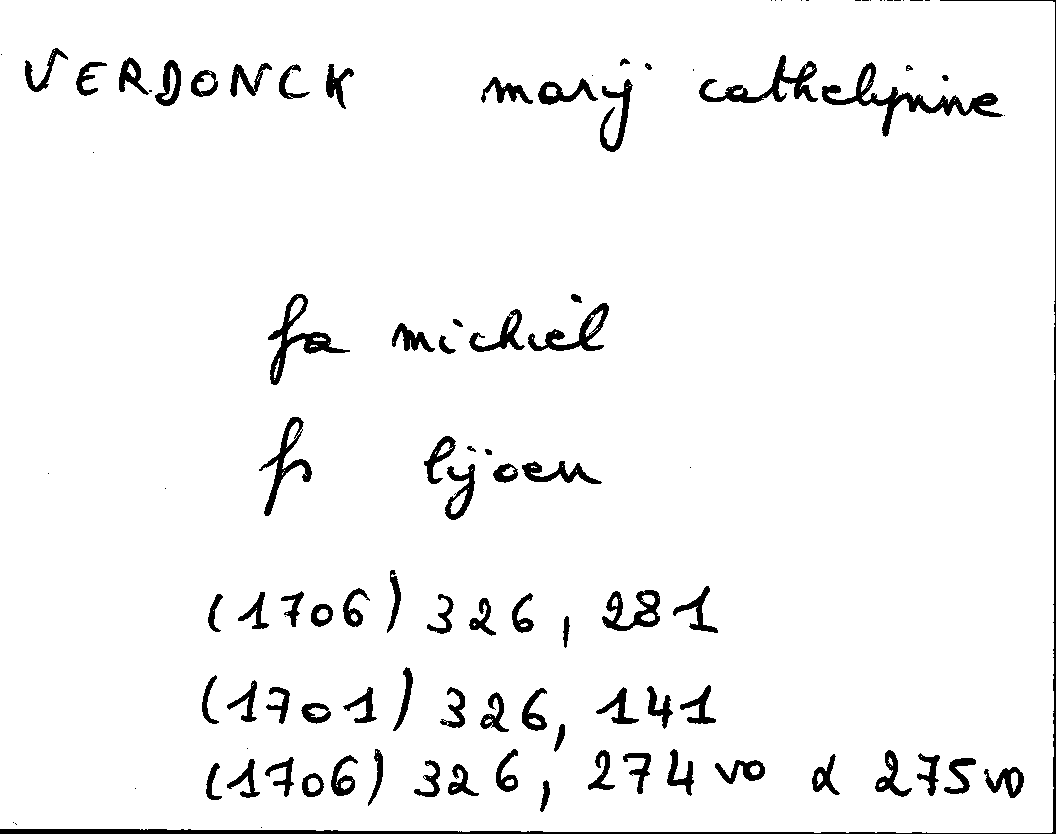 VERDONCK marij cathelijnine
fa michiel
fs lijoen
(1706) 326, 281
(1701) 326, 141
(1706) 326, 274 vo & 275 vo